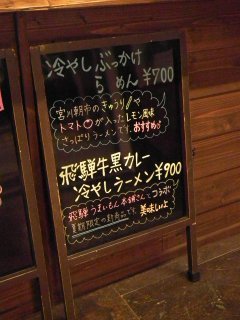 冷やしぶっかけ
らーめん ¥700
宮川朝市のきゅうりや
トマトが入ったレモン風味
さっぱりラーメンです。おすすめ!
飛騨牛黒カレー
冷やしラーメン ¥900
飛騨うまいもん本舗さんとコラボ
夏期限定の新商品です。美味しいよ